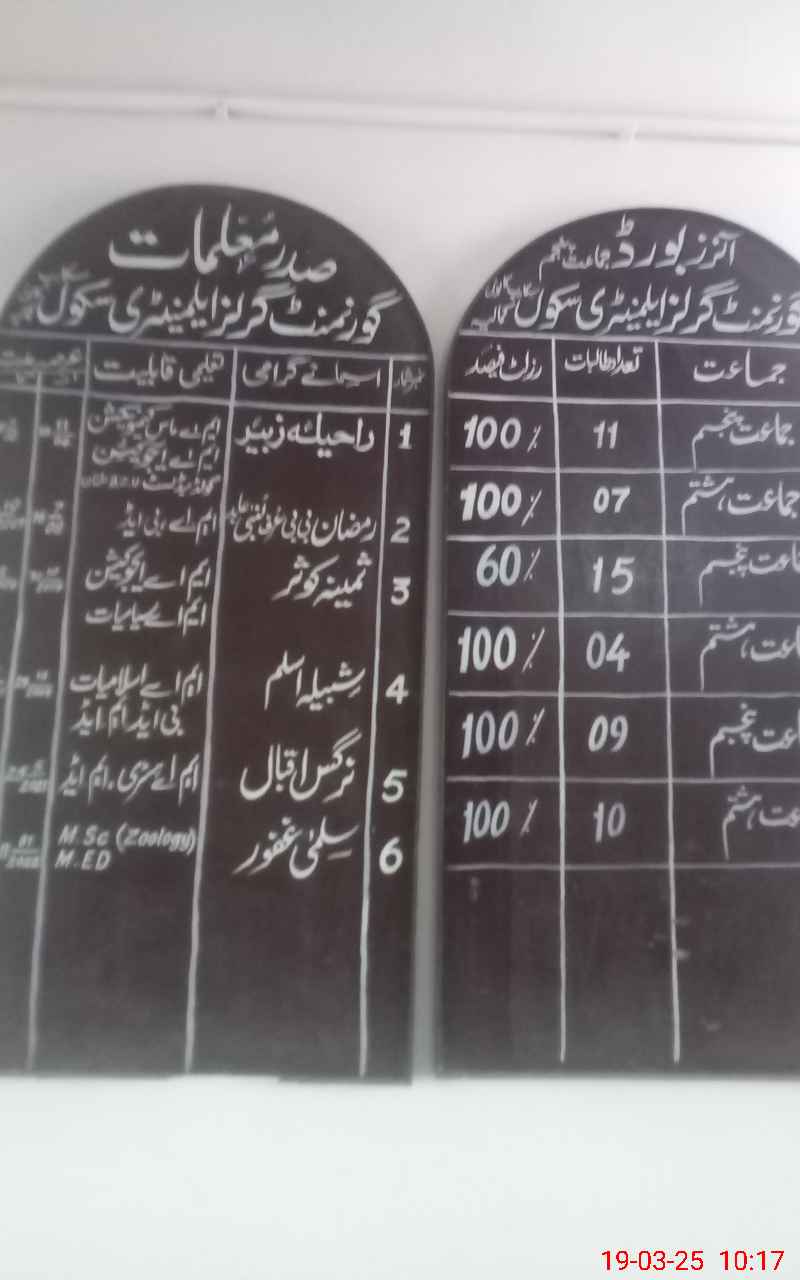 صدر معلمات
گورنمنٹ گرلز ایلیمنٹری سکول
نمبر شمار اسمائے گرامی تعلیمی قابلیت
1 راحیلہ زبیر ایم اے ماس کمیونیکیشن
ایم اے ایجوکیشن
گولڈ میڈلسٹ
2 رمضان بی بی عرف ایم اے، بی ایڈ
3 ثمینہ کوثر ایم اے ایجوکیشن
ایم اے سیاسیات
4 شبیلہ اسلم ایم اے اسلامیات
بی ایڈ ایم ایڈ
5 نرگس اقبال ایم اے ہسٹری. ایم ایڈ
6 سلمیٰ غفور M.Sc (Zoology)
M.ED
آنرز بورڈ جماعت پنجم
گورنمنٹ گرلز ایلیمنٹری سکول
جماعت تعداد طالبات رزلٹ فیصد
جماعت پنجم 11 100 %
جماعت ہشتم 07 100 %
جماعت پنجم 15 60 %
جماعت ہشتم 04 100 %
جماعت پنجم 09 100 %
جماعت ہشتم 10 100 %
19-03-25 10:17